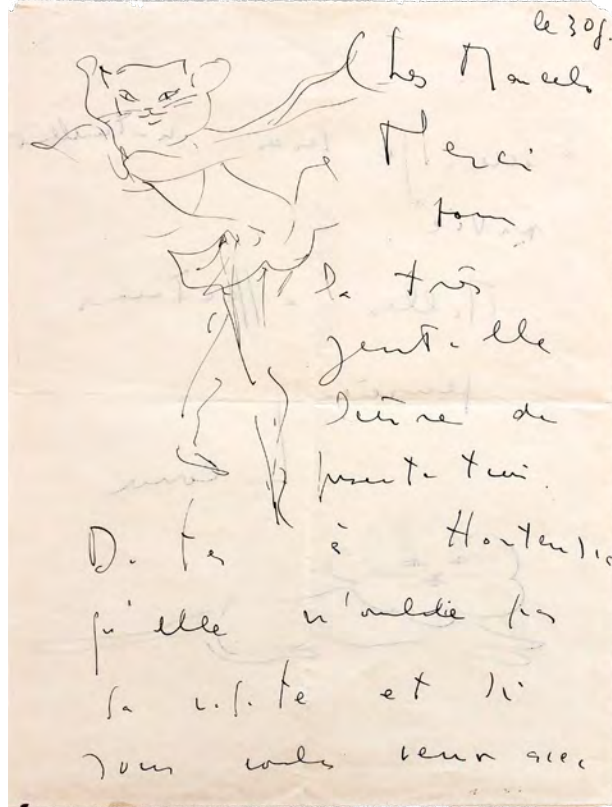 le 30 j.
Cher Marcelo
Merci
pour
la très
gentille
de
présentation.
Dites à Hortensia
qu'elle n'oublie pas
sa visite et si
vous voulez venir avec